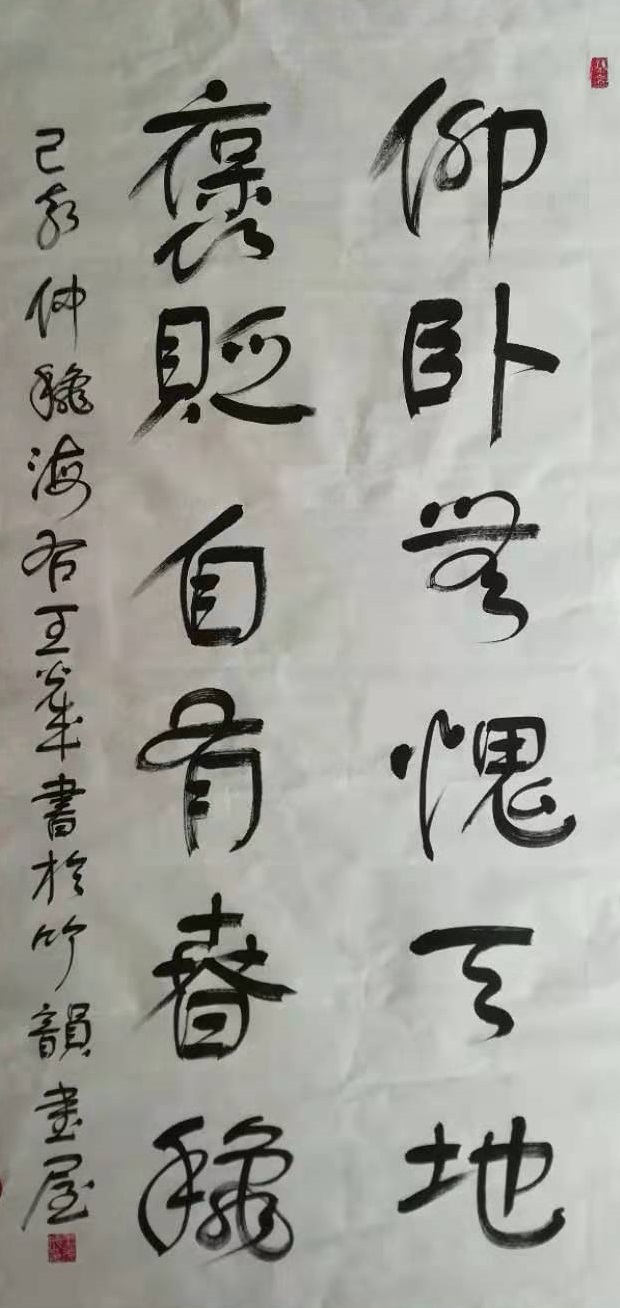 仰卧無愧天地
褒貶自有春龝
己亥仲龝海右王崋書於竹韻書屋